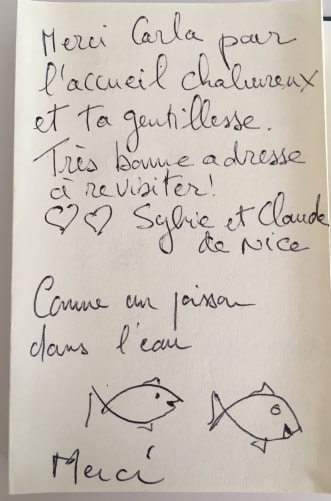 Merci Carla pour
l'accueil chaleureux
et ta gentillesse.
Très bonne adresse
à revisiter!
♡♡ Sylvie et Claude
de Nice
Comme un poisson
dans l'eau
Merci